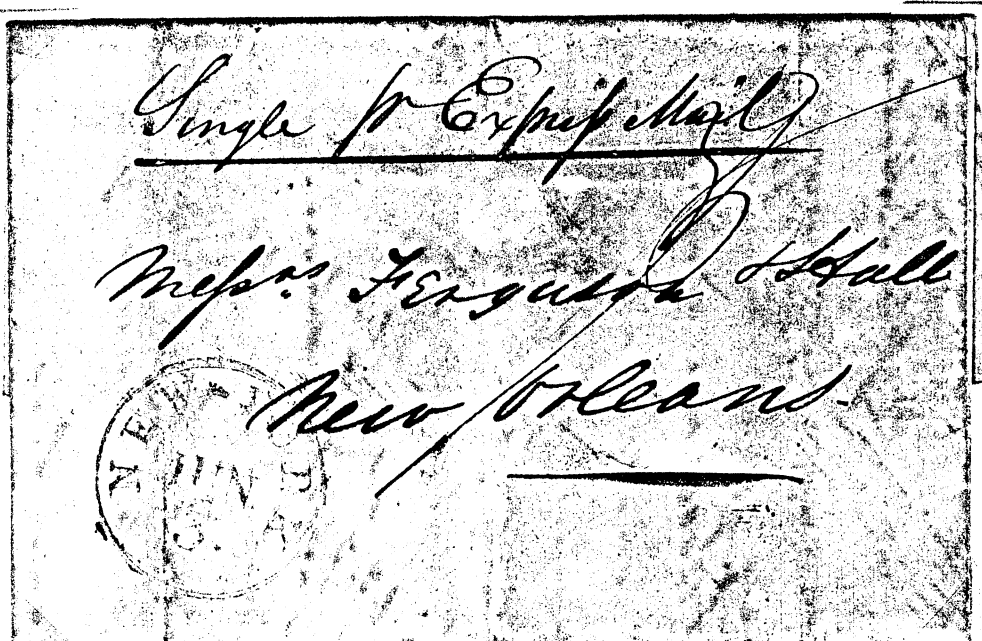 Single pr Express Mail
Messrs. Ferguson & Hall
New Orleans.
NEW